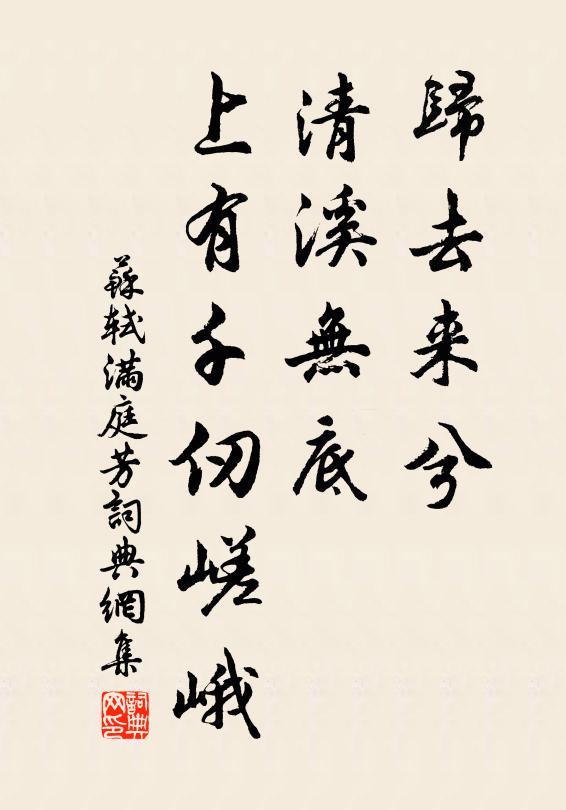 歸去来兮
清溪無底
上有千仞嵯峨
蘇軾滿庭芳詞典網集
詞典网印